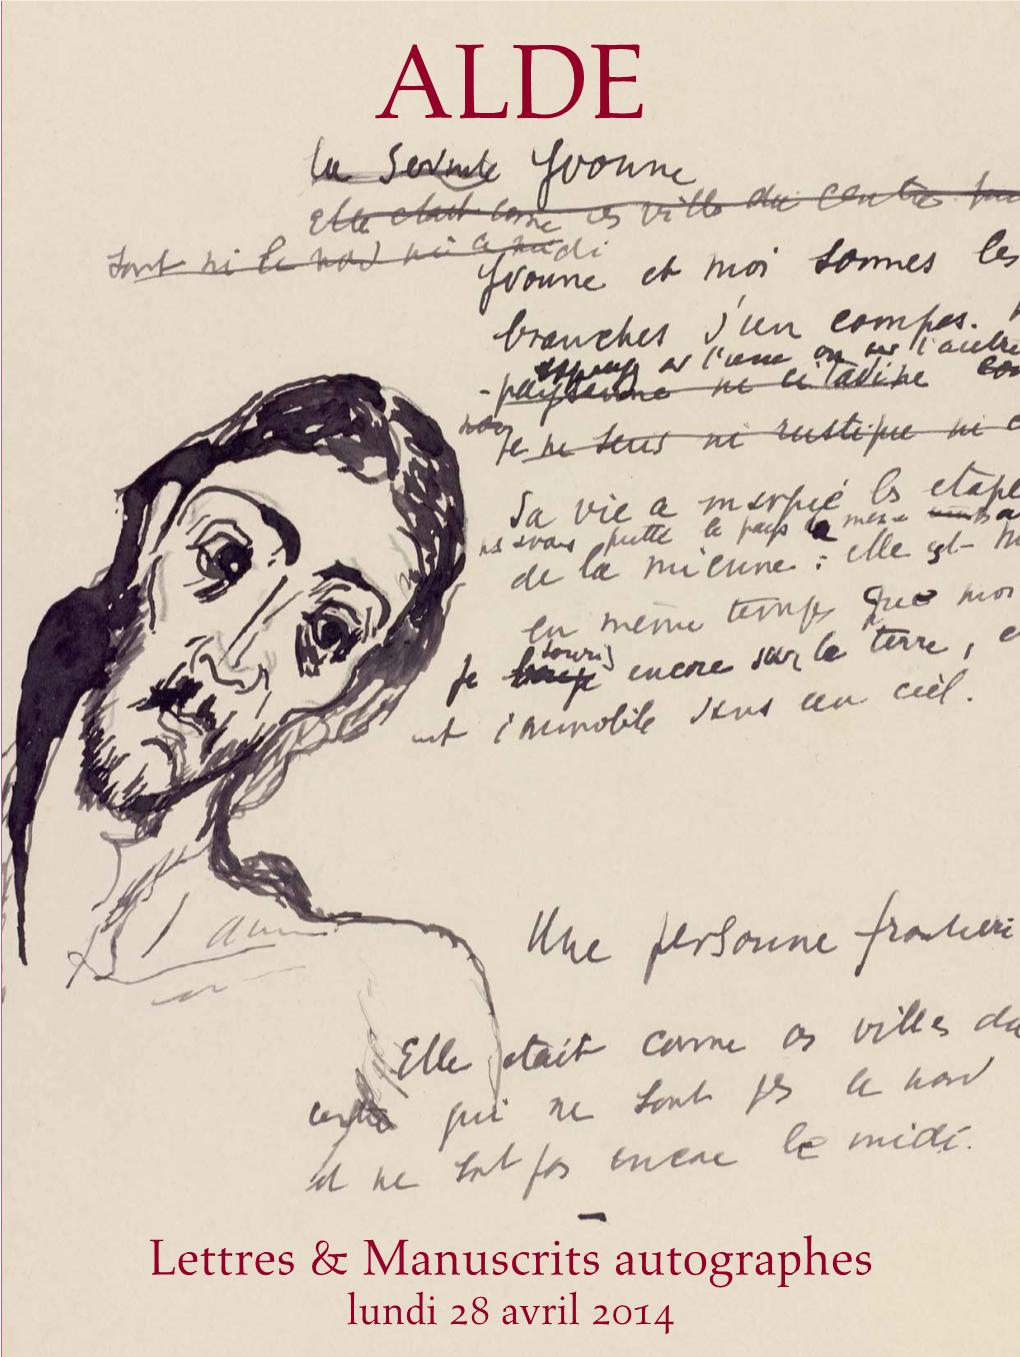 ALDE
la Servante Yvonne
Elle etait comme ces villes du centre
sont ni le nord ni le midi
Yvonne et moi sommes les
branches d'un compas.
sur l'une ou sur l'autre
- paysanne ni citadine
Je ne suis ni rustique ni
Sa vie a marqué les etape
avons quitté le pays la meme
de la mienne : elle est
en même temps que moi
souris
Je encore sur la terre, e
est immobile dans un ciel.
Une personne frontiere
Elle etait comme ces villes du
centre qui ne sont pas le nord
et ne sont pas encore le midi.
Lettres & Manuscrits autographes
lundi 28 avril 2014